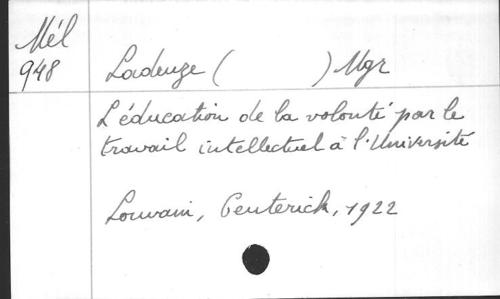 Mél
948
Ladeuze ( ) Mgr
L'éducation de la volonté par le
travail intellectuel à l'Université
Louvain, Ceuterick, 1922